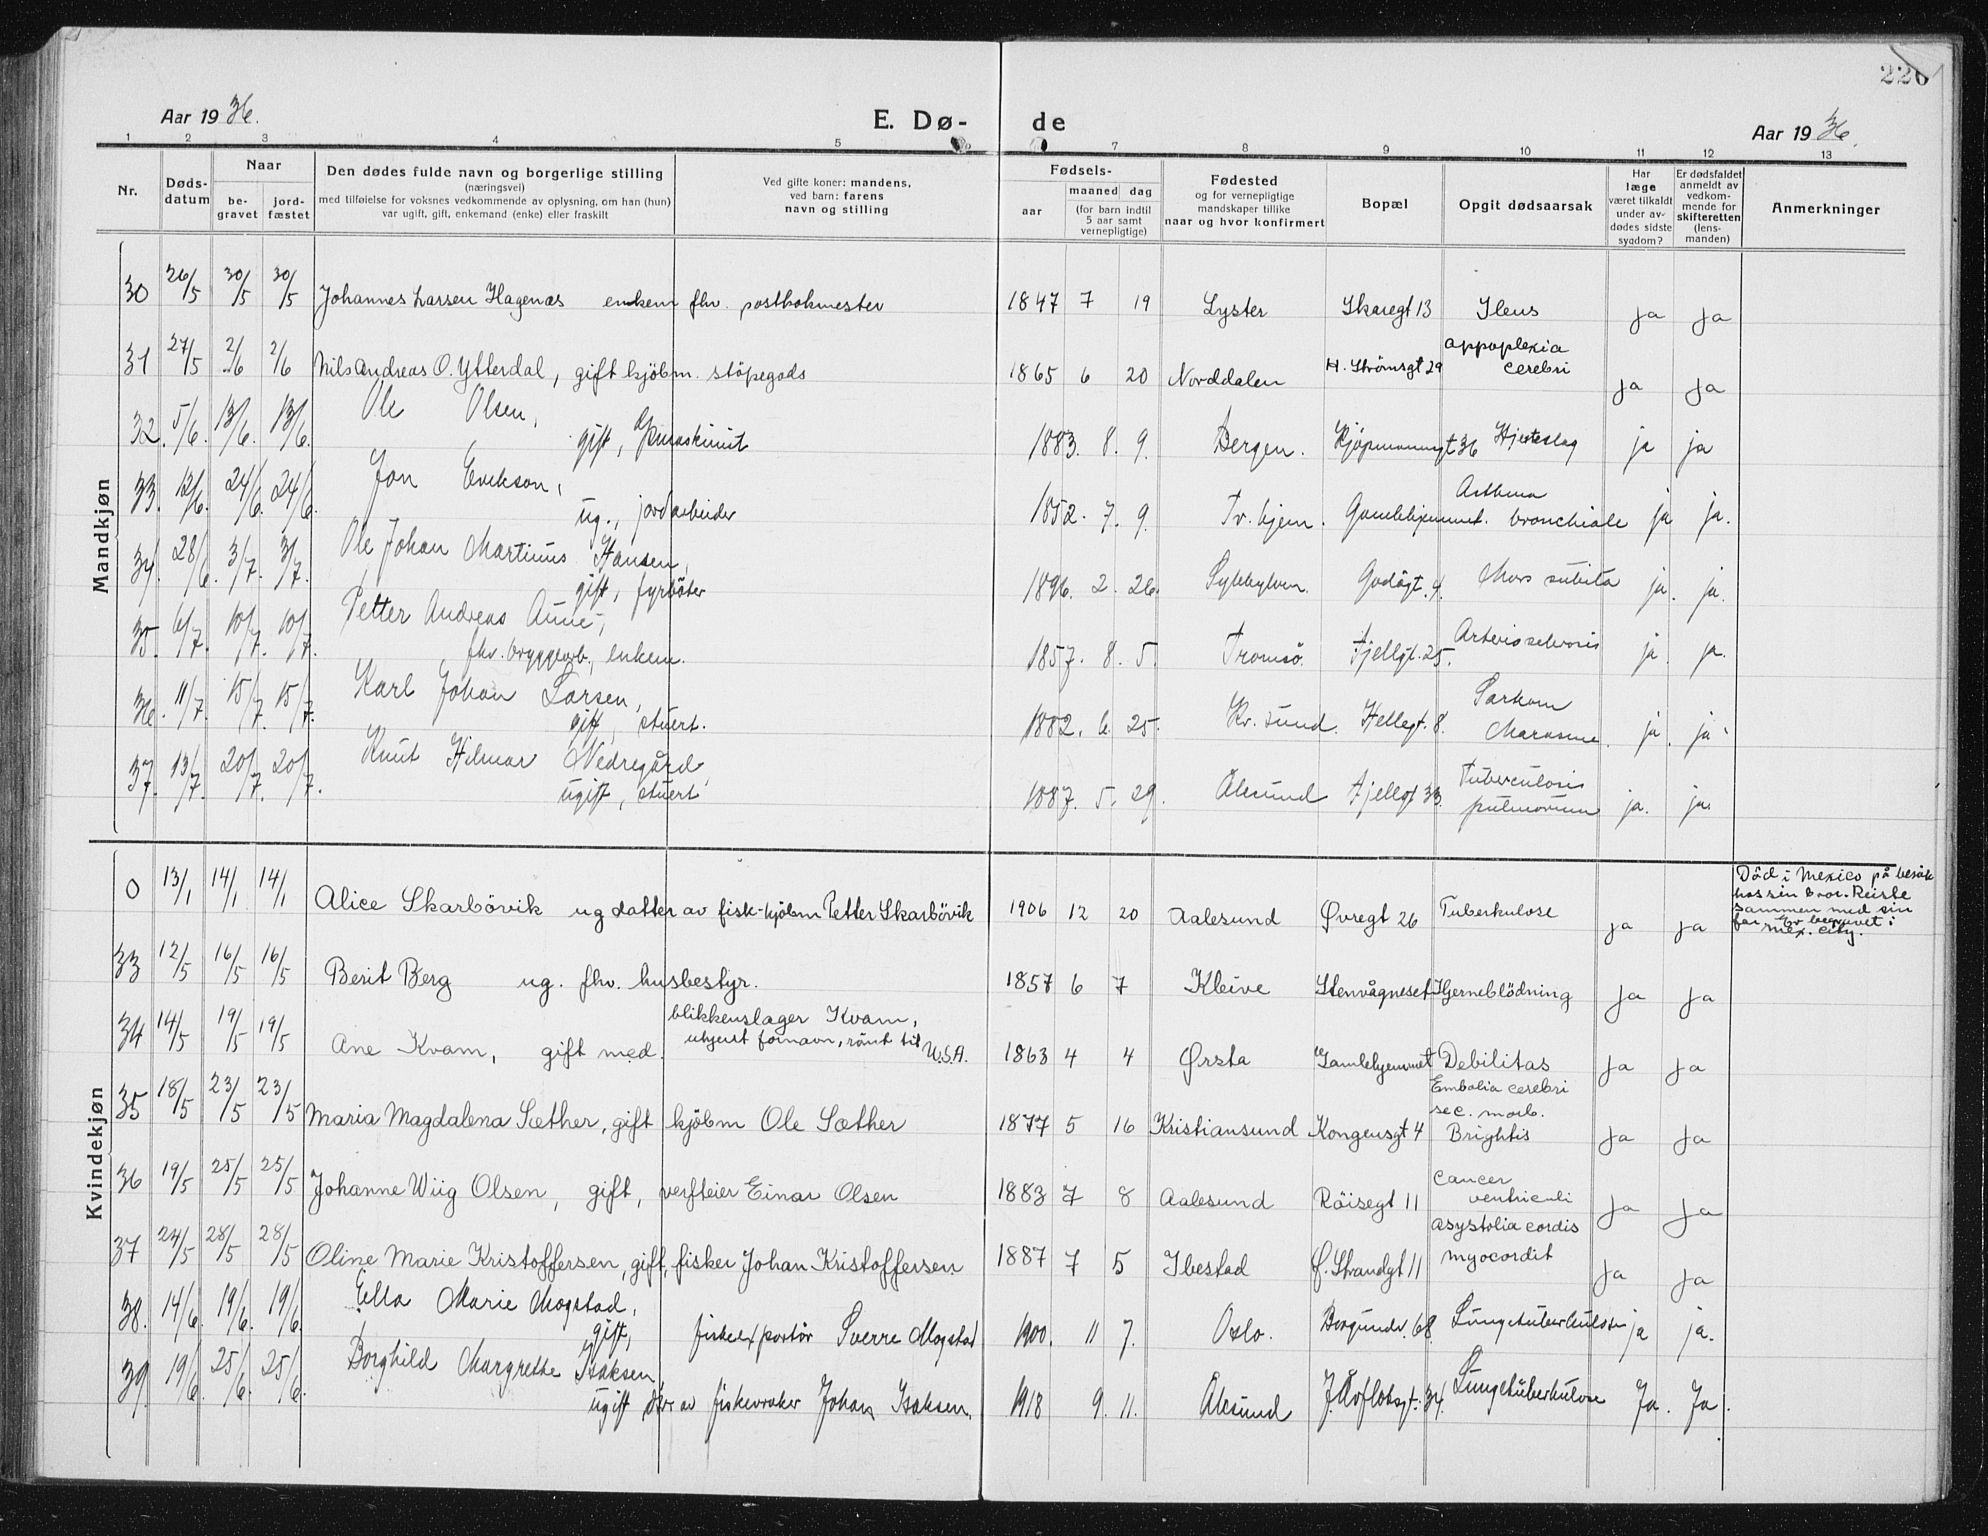 226
Aar 1936.
E. Dø-
de
Aar 1936.
1 2 3 4 5 7 8 9 10 11 12 13
Nr.
Døds-
datum
Naar
be-
gravet
jord-
fæstet
Den dødes fulde navn og borgerlige stilling
(næringsvei)
med tilføielse for voksnes vedkommende av oplysning, om han (hun)
var ugift, gift, enkemand (enke) eller fraskilt
Ved gifte koner: mandens,
ved barn: farens
navn og stilling
Fødsels-
aar
maaned dag
(for barn indtil
5 aar samt
vernepligtige)
Fødested
og for vernepligtige
mandskaper tillike
naar og hvor konfirmert
Bopæl
Opgit dødsaarsak
Har
læge
været tilkaldt
under av-
dødes sidste
sygdom?
Er dødsfaldet
anmeldt av
vedkom-
mende for
skifteretten
(lens-
manden)
Anmerkninger
Mandkjøn
30 26/5 30/5 30/5 Johannes Larsen Hagenæs enkem fhv. postbokmester 1847 7 19 Lyster Skaregt 13 Ileus ja ja
31 27/5 2/6 2/6 Nils Andreas O. Ytterdal, gift kjöbm. stöpegods 1865 6 20 Norddalen H. Strømsgt 29 appoplexia cerebri ja ja
32. 5/6. 13/6. 13/6. Ole Olsen,
gift, 1883. 8. 9. Bergen. 36 Hjerteslag ja ja
33. 12/6. 24/6. 24/6. Jon Erikson,
ug., jordarbeider 1852. 7. 9. Tr. hjem. Gamlehjemmet. Asthma bronchiale ja ja.
34. 28/6. 3/7. 3/7. Ole Johan Martinus Hansen,
gift, fyrböter 1896. 2. 26. Sykkylven. Godögt. 4. Mors subita ja. ja.
35. 6/7. 10/7. 10/7. Petter Andreas Aune,
fhv. bryggearb., enkem. 1857. 8. 5. Tromsö. Fjellgt. 25. Arteriosclerosis ja. ja.
36. 11/7. 15/7. 15/7. Karl Johan Larsen,
gift, stuert. 1882. 6. 25. Kr. sund. Hellegt. 8. Sarkom
Marasme. ja. ja
37. 13/7. 20/7. 20/7. Knut Hilmar Nedregård,
ugift, stuert 1887. 5. 29. Ålesund Fjellgt 33. Tuberculosis
pulmonum ja. ja.
Kvindekjøn
0 13/1 14/1 14/1 Alice Skarbövik ug datter av fisk-kjöbm Petter Skarbövik 1906 12 20 Aalesund Øvregt 26 Tuberkulose ja ja
Död i Mexico på besök
hos sin bror. Reiste
sammen med sin
far. Er begravet i
Mex. City.
33 12/5 16/5 16/5 Berit Berg ug. fhv. husbestyr. 1857 6 7 Kleive Stenvågneset Hjerneblödning ja ja
34 14/5 19/5 19/5 Ane Kvam, gift med blikkenslager Kvam,
ukjent fornavn, römt til U.S.A. 1863 4 4 Ørsta Gamlehjemmet Debilitas ja ja
35 18/5 23/5 23/5 Maria Magdalena Sæther, gift kjöbm Ole Sæther 1877 5 16 Kristiansund Kongensgt 4 Embolia cerebri
sec. morb.
Brightis ja ja
36 19/5 25/5 25/5 Johanne Wiig Olsen, gift, verfteier Einar Olsen 1883 7 8 Aalesund Röisegt 11 cancer
ventriculi ja ja
37 24/5 28/5 28/5 Oline Marie Kristoffersen, gift, fisker Johan Kristoffersen 1887 7 5 Ibestad Ø. Strandgt 11 asystolia cordis
myocordit ja ja
38. 14/6. 19/6. 19/6. Ella Marie Mogstad,
gift, fiskeexportör Sverre Mogstad 1900. 11 7. Oslo. Borgundv. 68. Lungetuberkulose ja ja.
39. 19/6. 25/6. 25/6. Borghild Margrethe Isaksen,
ugift dtr av fiskevraker Johan Isaksen. 1918 9. 11. Ålesund 34. Lungetuberkulose Ja. Ja.